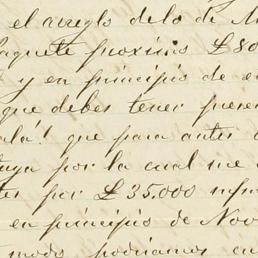 el arreglo de lo de
paquete proximo £80
y en principio de en
que debes tener prese
alá! que para antes
tuya por la cual me
tes por £35.000
en principio de Nov
modo podriamos en